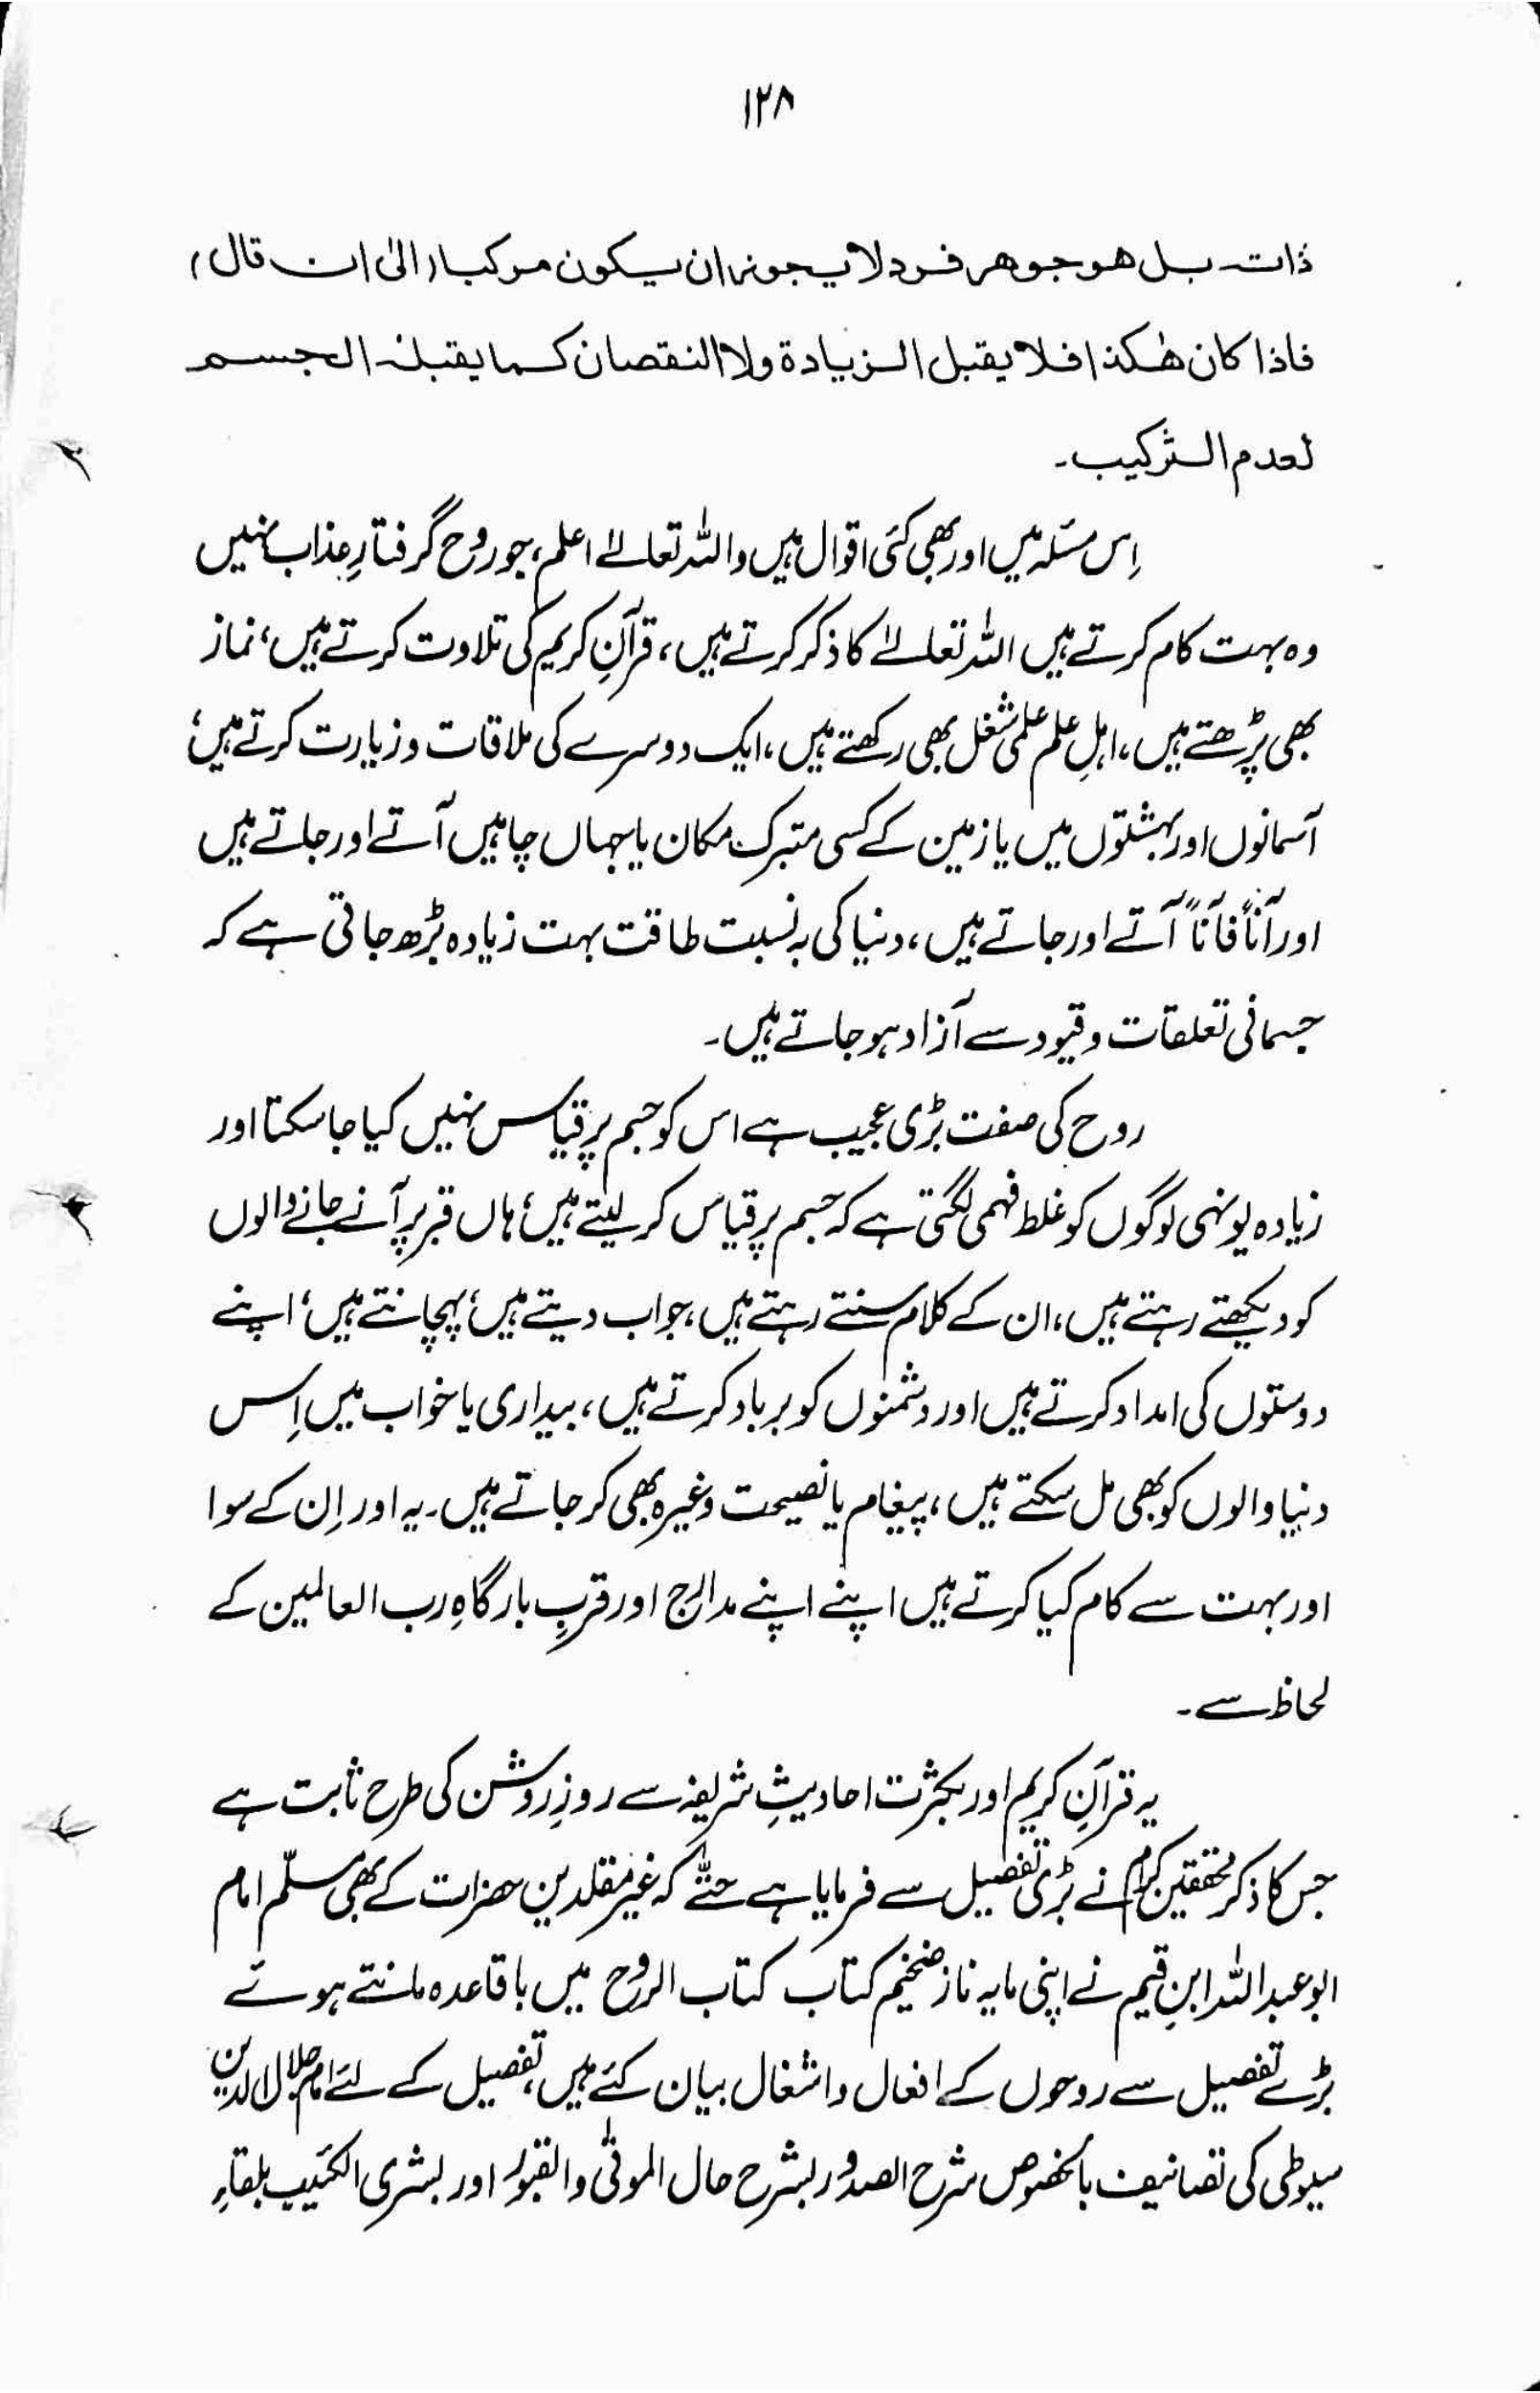 ۱۲۸
ذات بل هو جوهر فرد لا يجوز ان يكون مركبا (الىٰ ان قال)
فاذا كان هٰكذا فلا يقبل الزيادة ولا النقصان كما يقبلہ الجسم
لعدم التركيب۔
اِس مسئلہ میں اور بھی کئی اقوال ہیں واللہ تعالےٰ اعلم، جو روح گرفتارِ عذاب نہیں
وہ بہت کام کرتے ہیں اللہ تعالےٰ کا ذکر کرتے ہیں، قرآنِ کریم کی تلاوت کرتے ہیں، نماز
بھی پڑھتے ہیں، اہلِ علم علمی شغل بھی رکھتے ہیں، ایک دوسرے کی ملاقات و زیارت کرتے ہیں،
آسمانوں اور بہشتوں میں یا زمین کے کسی متبرک مکان یا جہاں چاہیں آتے اور جاتے ہیں
اور آناً فآناً آتے اور جاتے ہیں، دنیا کی بہ نسبت طاقت بہت زیادہ بڑھ جاتی ہے کہ
جسمانی تعلقات و قیود سے آزاد ہو جاتے ہیں۔
روح کی صفت بڑی عجیب ہے اس کو جسم پر قیاس نہیں کیا جا سکتا اور
زیادہ یونہی لوگوں کو غلط فہمی لگتی ہے کہ جسم پر قیاس کر لیتے ہیں، ہاں قبر پر آنے جانے والوں
کو دیکھتے رہتے ہیں، ان کے کلام سنتے رہتے ہیں، جواب دیتے ہیں، پہچانتے ہیں، اپنے
دوستوں کی امداد کرتے ہیں اور دشمنوں کو برباد کرتے ہیں، بیداری یا خواب میں اِس
دنیا والوں کو بھی مل سکتے ہیں، پیغام یا نصیحت وغیرہ بھی کر جاتے ہیں۔ یہ اور اِن کے سوا
اور بہت سے کام کیا کرتے ہیں اپنے اپنے مدارج اور قربِ بارگاہِ رب العالمین کے
لحاظ سے۔
یہ قرآنِ کریم اور بکثرت احادیثِ شریفہ سے روزِ روشن کی طرح ثابت ہے
جس کا ذکر محققین کرام نے بڑی تفصیل سے فرمایا ہے حتّٰے کہ غیر مقلدین حضرات کے بھی مسلّم امام
ابو عبد اللہ ابنِ قیم نے اپنی مایہ ناز ضخیم کتاب کتاب الروح میں باقاعدہ مانتے ہوئے
بڑے تفصیل سے روحوں کے افعال و اشغال بیان کئے ہیں، تفصیل کے لئے امام جلال الدین
سیوطی کی تصانیف بالخصوص شرح الصدور بشرح حال الموتٰی والقبور اور بشری الکئیب بلقاءِ